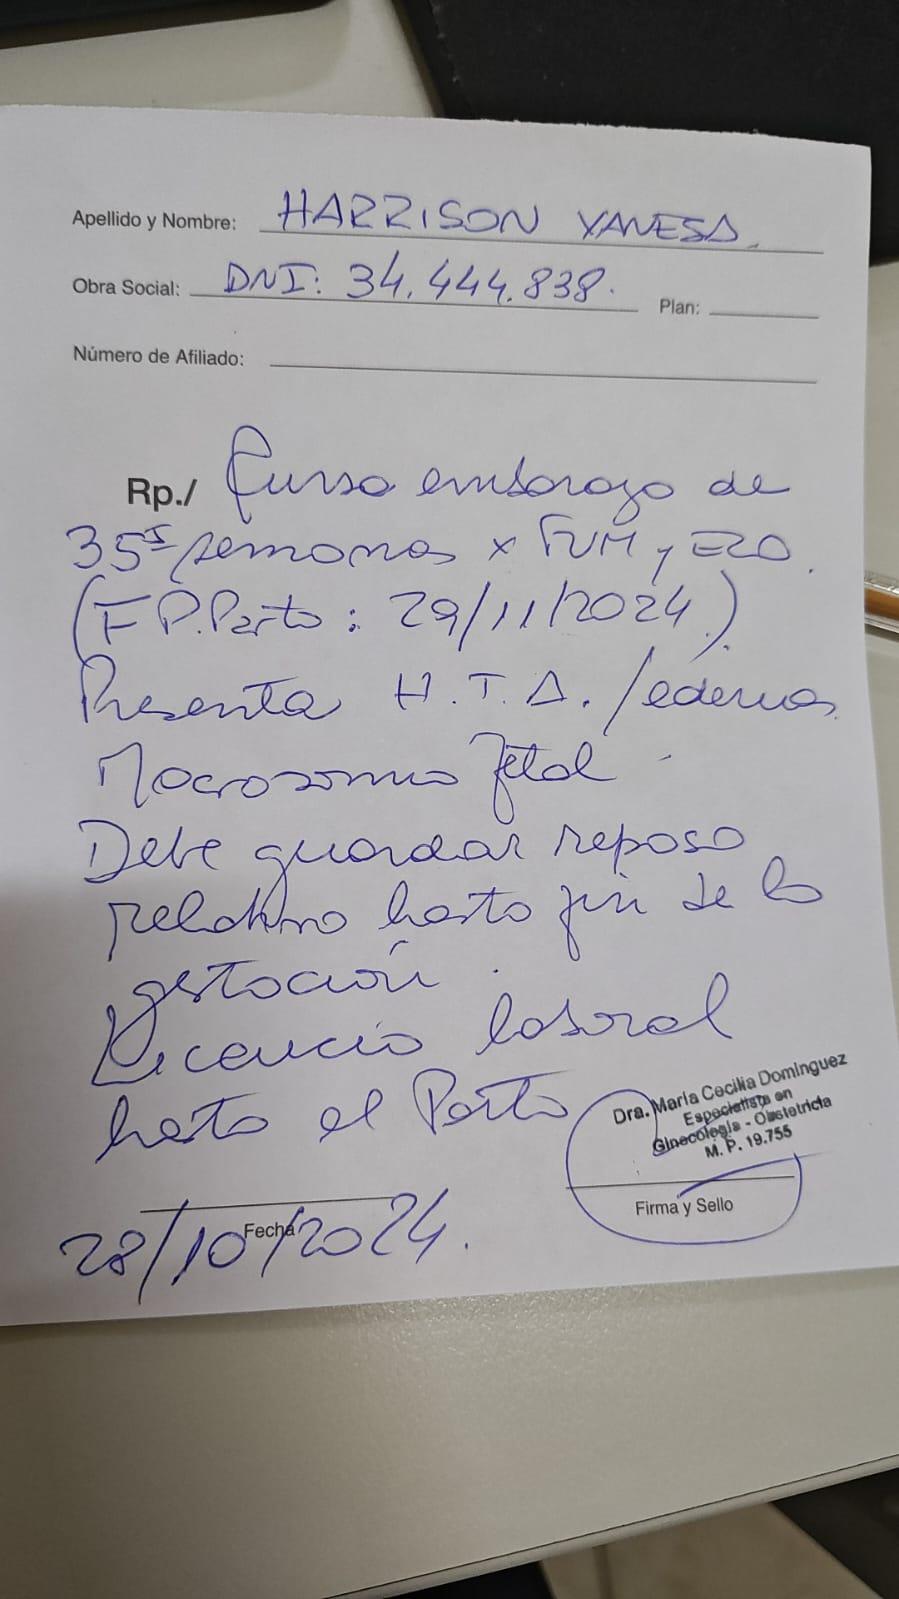 Apellido y Nombre: HARRISON YANESA.
Obra Social: DNI: 34.444.838. Plan:
Número de Afiliado:
Rp./ Cursa embarazo de
35 semanas x FUM y ECO.
(F P. Parto: 29/11/2024).
Presenta H.T.A. /edemas.
Macrosomia fetal.
Debe guardar reposo
relativo hasta fin de la
gestación.
Licencia laboral
hasta el Parto
Dra. María Cecilia Dominguez
Especialista en
Ginecología - Obstetricia
M. P. 19.755
Firma y Sello
Fecha
28/10/2024.